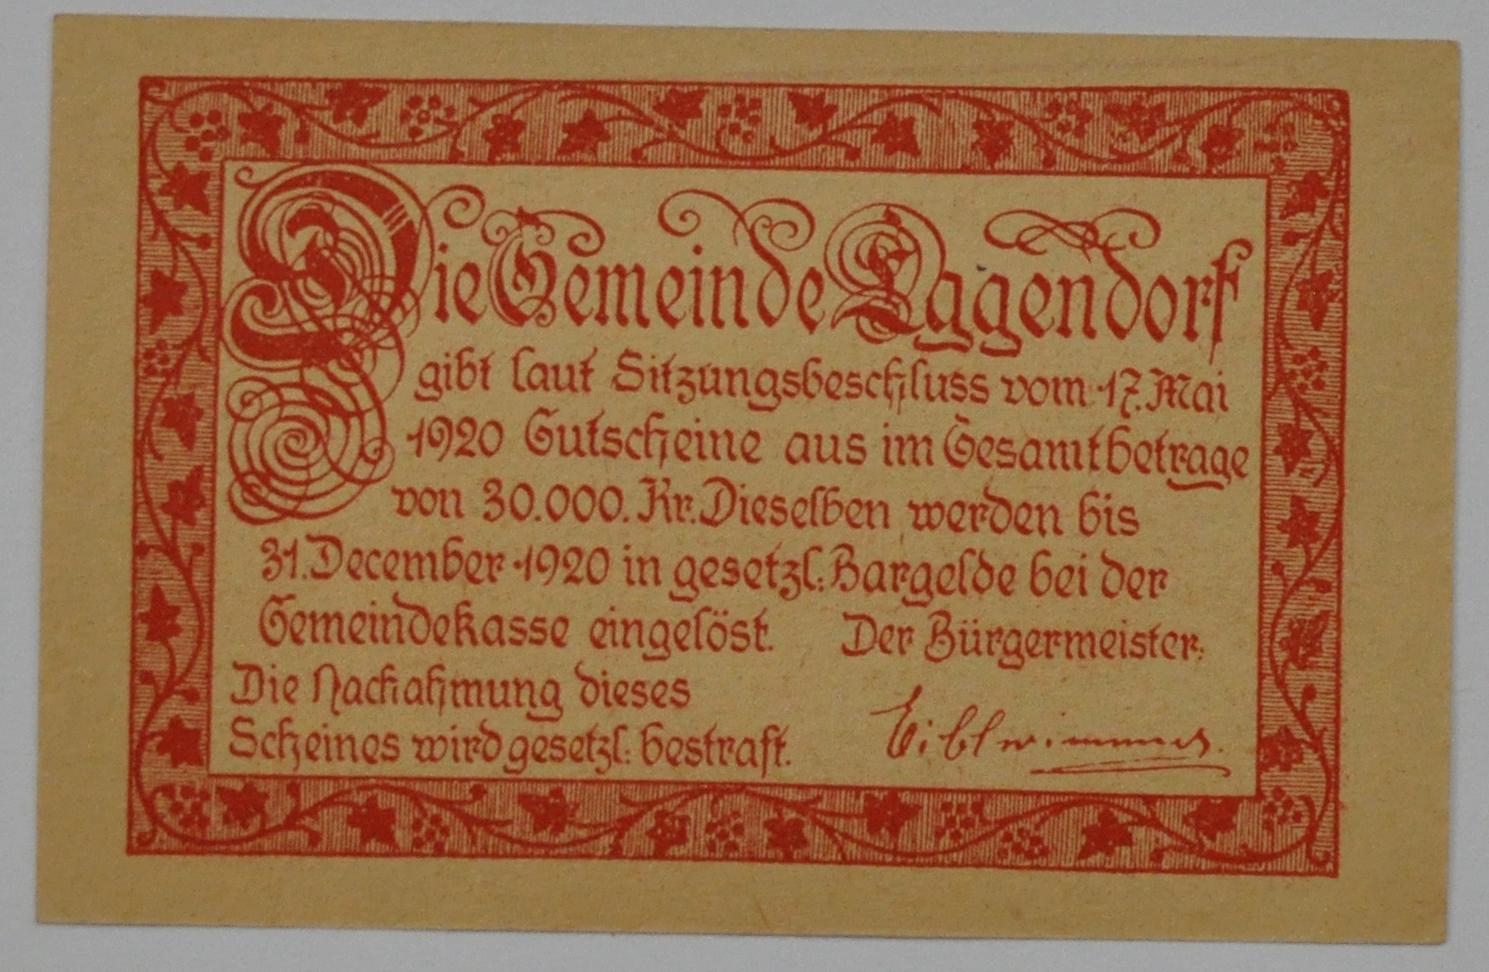 Die Gemeinde Eggendorf
gibt laut Sitzungsbeschluss vom 17. Mai
1920 Gutscheine aus im Gesamtbetrage
von 30.000. Kr. Dieselben werden bis
31. December 1920 in gesetzl: Bargelde bei der
Gemeindekasse eingelöst. Der Bürgermeister:
Die Nachahmung dieses
Scheines wird gesetzl: bestraft.
Eiblwimmer.